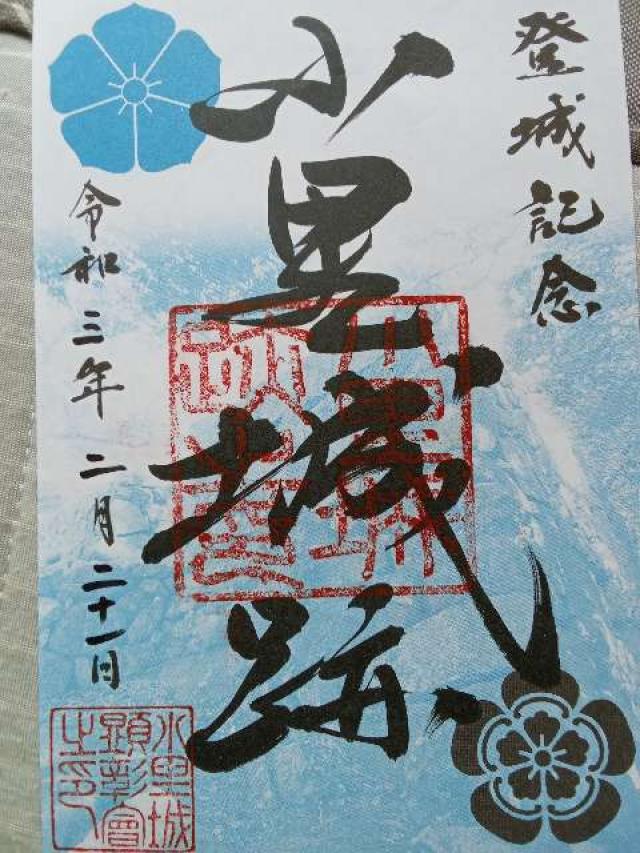 登城記念
小里城跡
令和三年二月二十一日
小里城
顕彰會
之印